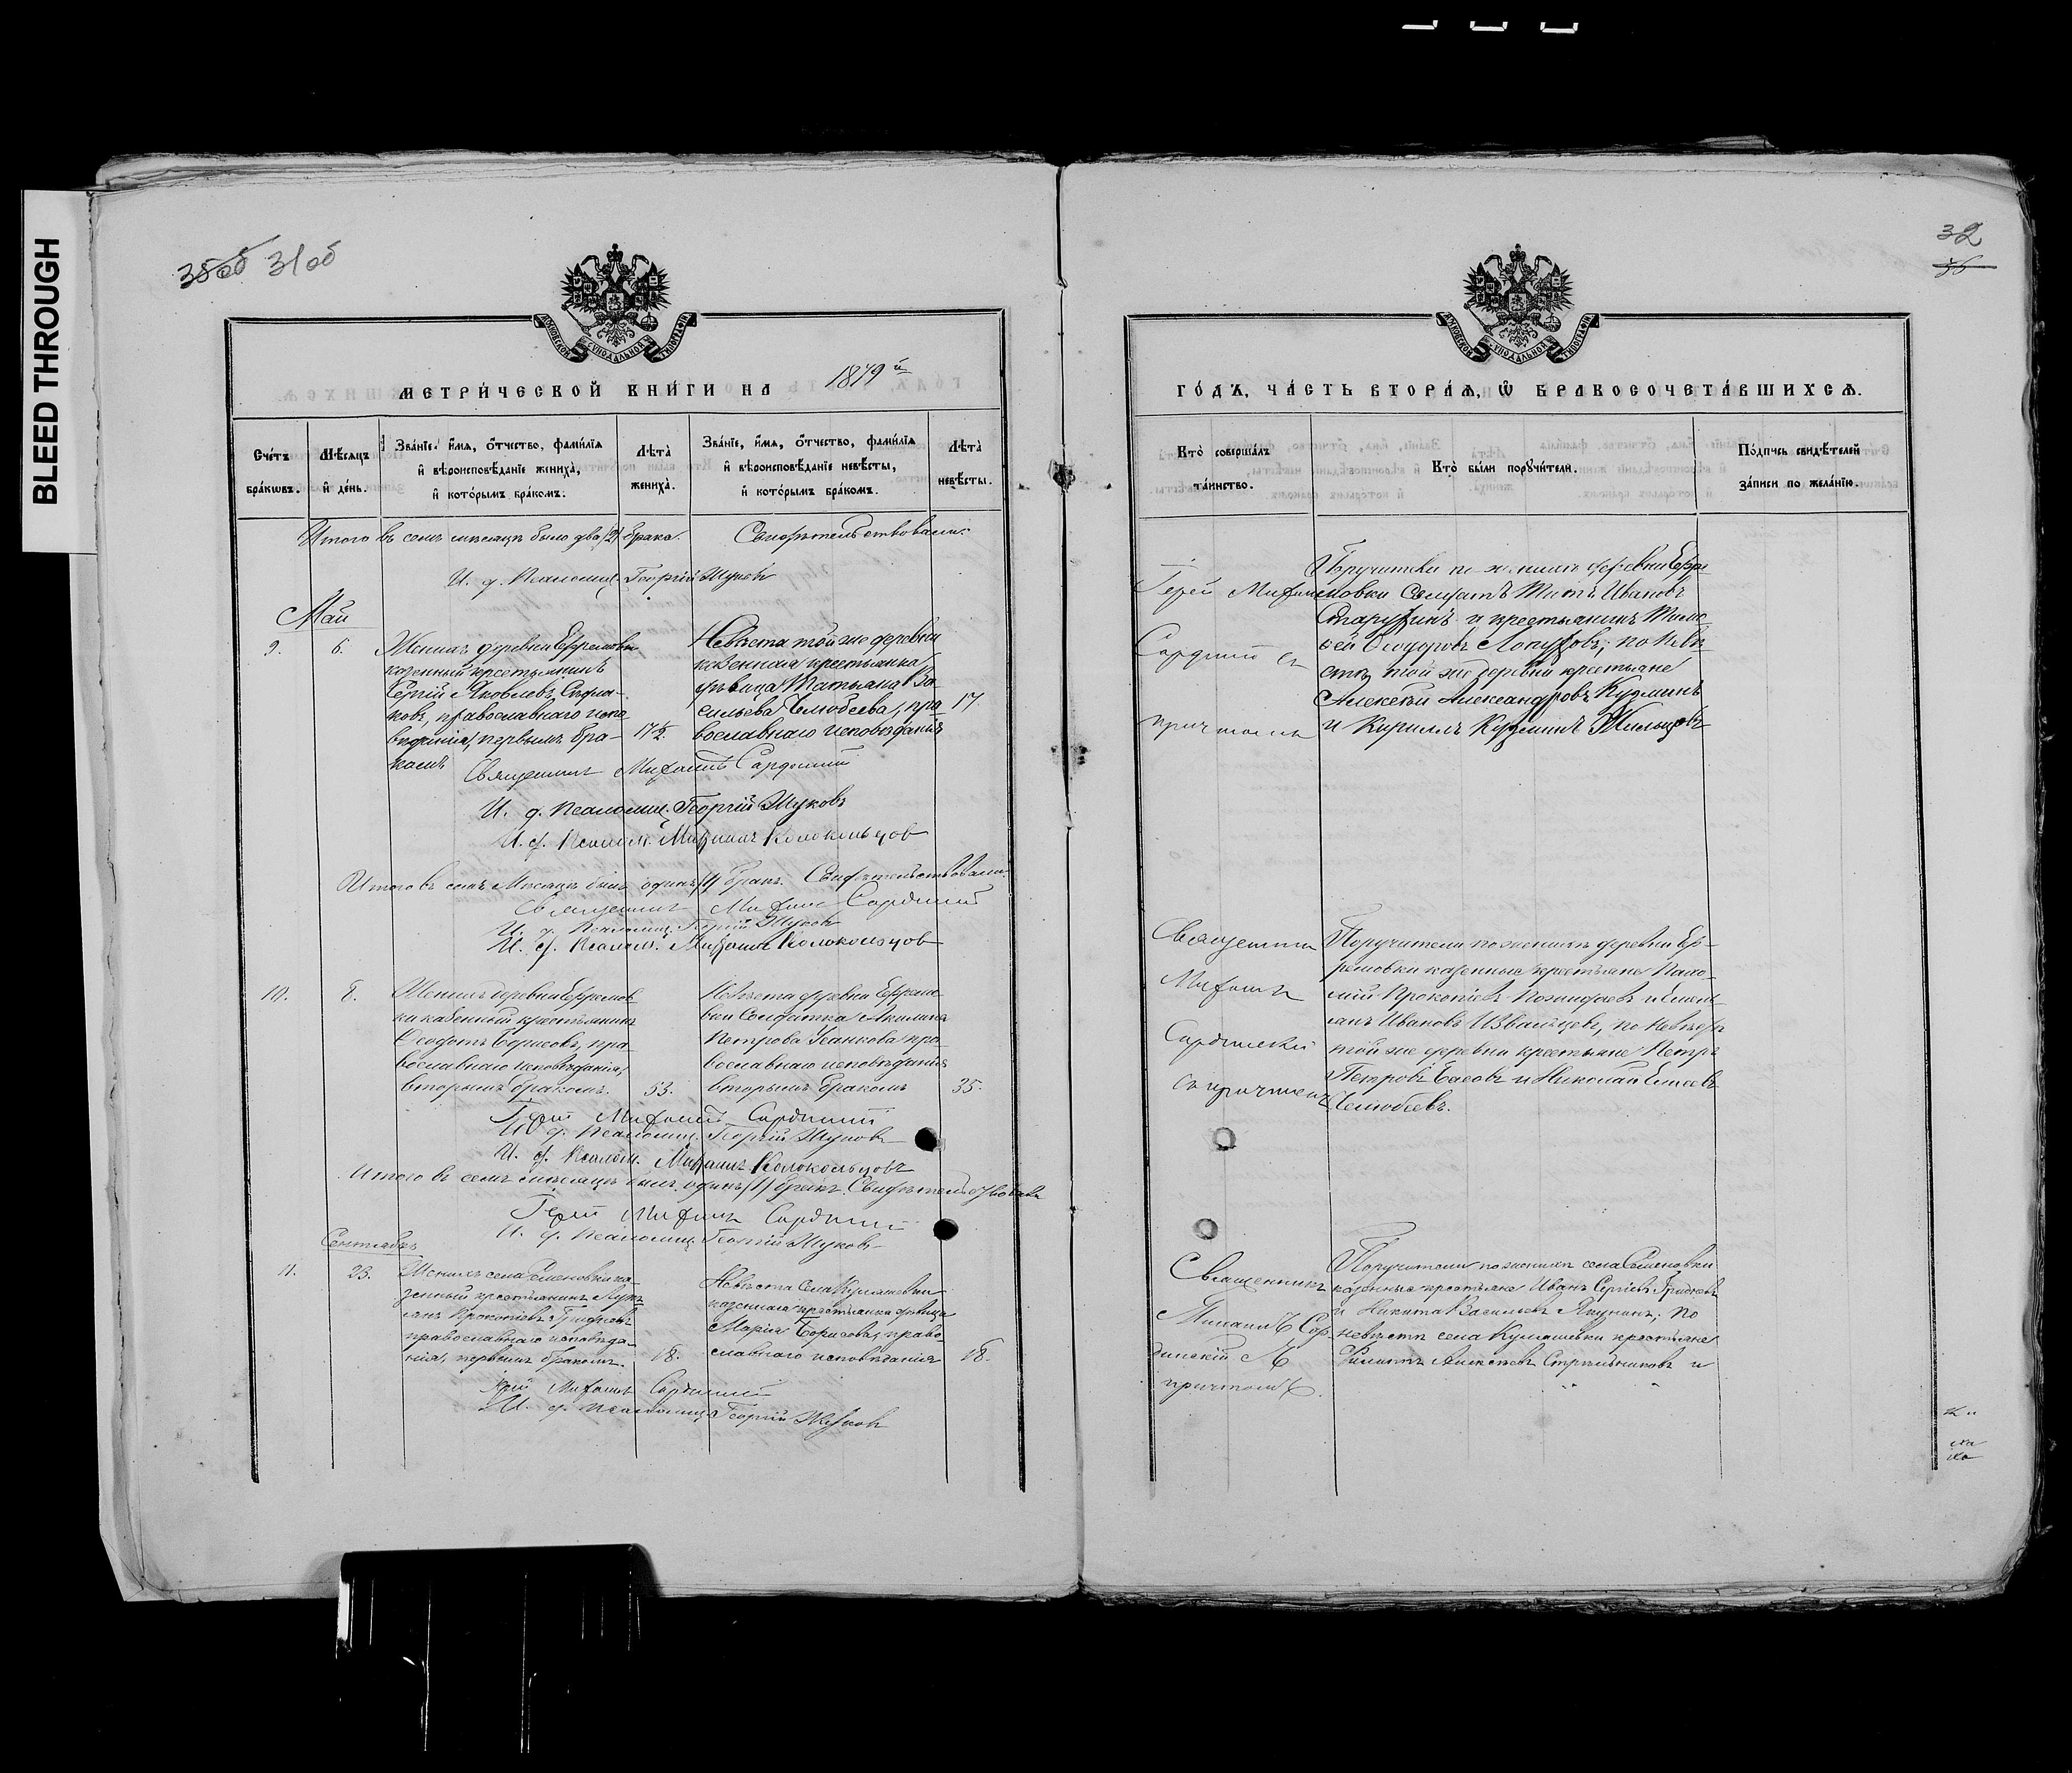 BLEED THROUGH
35об 31об
МОСКОВСКОЙ СѴНОДАЛЬНОЙ ТИПОГРАФІИ
МЕТРИ́ЧЕСКОЙ КНИ́ГИ НА 1879й
Сче́тъ бра́кωвъ.
Мѣ́сяцъ и҆ де́нь.
Зва́нїе, и҆́мя, ѻ҆́тчество, фами́лїя
и҆ вѣроисповѣ́данїе жениха̀,
и҆ кото́рымъ бра́комъ.
Лѣта̀ жениха̀.
Зва́нїе, и҆́мя, ѻ҆́тчество, фами́лїя
и҆ вѣроисповѣ́данїе невѣ́сты,
и҆ кото́рымъ бра́комъ.
Лѣта̀ невѣ́сты.
Итого въ семъ мѣсяцѣ было два /2/ брака. Свидѣтельствовали:
И. д. Псаломщ. Георгій Жуковъ
Май
9. 6. Женихъ деревни Ефремовки
казенный крестьянинъ
Сергій Яковлевъ
православнаго испо
вѣданія, первымъ бра-
комъ
17½.
Невѣста той же деревни
казенная крестьянка
дѣвица Татьяна Ва
сильева Челюбеева, пра
вославнаго исповѣданія
17
Священникъ Михаилъ Сардинскій
И. д. Псаломщ. Георгій Жуковъ
И. д. Псалом. Михаилъ Колокольцов
Итого въ семъ мѣсяцѣ былъ одинъ /1/ бракъ. Свидѣтельствовали:
Священникъ Михаилъ Сардинскій
И. д. Псаломщ. Георгій Жуковъ
И. д. Псалом. Михаилъ Колокольцов
10. 8. Женихъ деревни Ефремов
ки казенный крестьянинъ
Ѳеодотъ Борисовъ, пра-
вославнаго исповѣданія,
вторымъ бракомъ.
53.
Невѣста деревни Ефремо
вки Солдатка Акилина
Петрова пра-
вославнаго исповѣданія
вторымъ бракомъ
35.
Іерей Михаилъ Сардинскій
И. д. Псаломщ. Георгій Жуковъ
И. д. Псалом. Михаилъ Колокольцовъ
Итого въ семъ мѣсяцѣ былъ одинъ /1/ бракъ. Свидѣтельствовали
Іерей Михаилъ Сардинскій
И. д. Псаломщ. Георгій Жуковъ
Сентябрь
11. 23. Женихъ села Семеновки ка-
зенный крестьянинъ
Прокопіевъ
православнаго исповѣда-
нія, первымъ бракомъ.
18.
Невѣста Села Кулашевки
казенная крестьянка дѣвица
Марія Борисова, право-
славнаго исповѣданія
18.
Іерей Михаилъ Сардинскій
И. д. Псаломщ. Георгій Жуковъ
32
36
МОСКОВСКОЙ СѴНОДАЛЬНОЙ ТИПОГРАФІИ
ГО́ДЪ, ЧА́СТЬ ВТОРА́Я, Ѽ БРАКОСОЧЕТА́ВШИХСЯ.
Кто̀ соверша́лъ та́инство.
Кто̀ бы́ли порꙋчи́тели.
По́дпись свидѣ́телей
за́писи по жела́нїю.
Іерей Михаилъ
Сардинскій съ
причтомъ
Поручители по женихѣ деревни Ефре
мовки Солдатъ Титъ Ивановъ
и крестьянинъ Тимо
ѳей Ѳеодоровъ Лопуховъ; по невѣ
стѣ той же деревни крестьяне
Алексѣй Александровъ Кузминъ
и Кириллъ Кузминъ Жильцовъ
Священникъ
Михаилъ
Сардинскій
съ причтомъ
Поручители по женихѣ деревни Еф-
ремовки казенные крестьяне
Прокопіевъ
Ивановъ по невѣстѣ
той же деревни крестьяне Петръ
Петровъ Басовъ и Николай Елисеевъ
Челюбеевъ.
Священникъ
Михаилъ Сар-
динскій съ
причтомъ.
Поручители по женихѣ села Семеновки
казенные крестьяне Иванъ Сергіевъ
и Никита Васильевъ Якунинъ; по
невѣстѣ села Кулашевки крестьяне
Филиппъ Алексѣевъ Стрѣльниковъ и